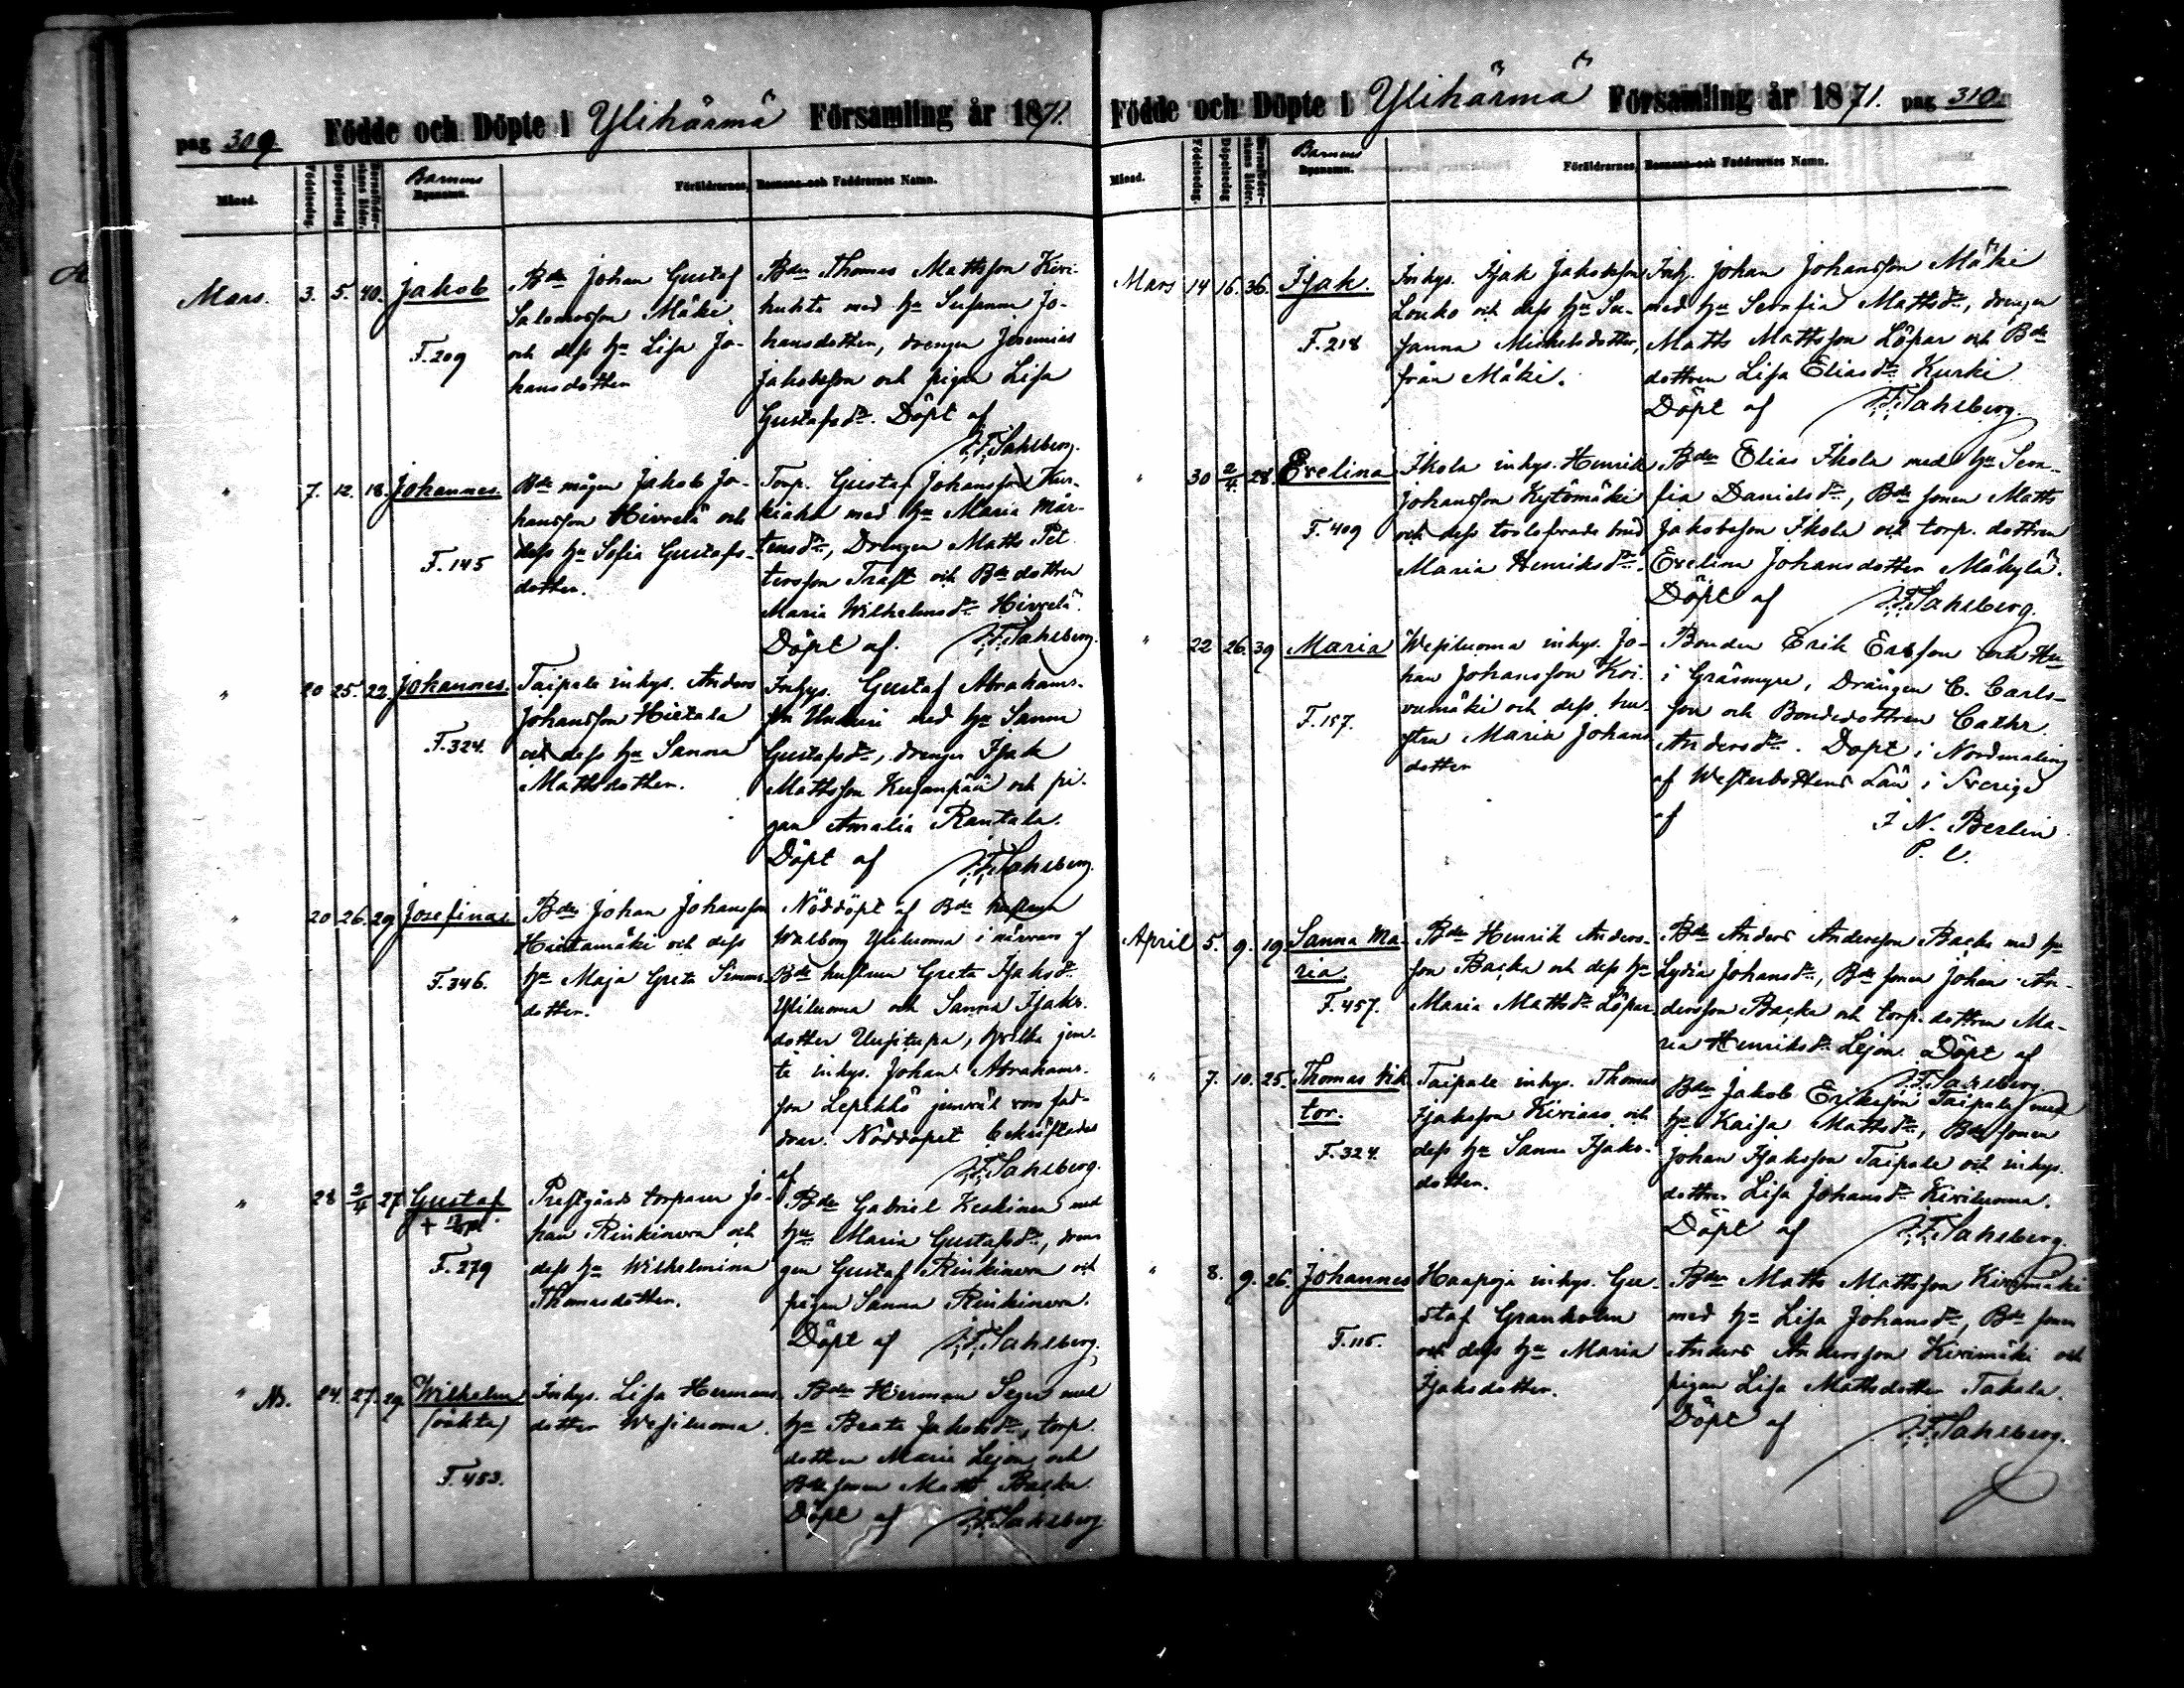 pag 309. Födde och Döpte i Ylihärmä Församling år 1871.
Månad. Födelsedag. Döpelsedag Barnaföderskans ålder. Barnens Bynamn. Föräldrarnes, Barnens och Faddrarnes Namn.
Mars. 3. 5. 40. Jakob
F. 209
Bdn Johan Gustaf
Salomonsson Mäki
och dess hu Lisa Jo-
hansdotter
Bdn Thomas Mattsson Kivi-
huhta med hu Susanna Jo-
hansdotter, drengen Jeremias
Jakobsson och pigan Lisa
Gustafsdr. Döpt af
J. F. Sahlberg.
" 7. 12. 18. Johannes.
F. 145
Bde mågen Jakob Jo-
hansson Hirvelä och
dess hu Sofia Gustafs-
dotter.
Torp. Gustaf Johansson
med hu Maria Mår-
tensdr, Drengen Matts Pet
tersson Traft och Bde dottren
Maria Wilhelmsdr Hirvelä.
Döpt af. J. F. Sahlberg.
" 20 25. 22. Johannes.
F. 324.
Taipale inhys. Anders
Johansson Hietala
och dess hu Sanna
Mattsdotter.
Inhys. Gustaf Abrahams-
son med hu Sanna
Gustafsdr, drengen Isak
Mattsson Kujanpää och pi-
gan Amalia Rantala.
Döpt af J. F. Sahlberg.
" 20 26. 29 Josefina.
F. 346.
Bdn Johan Johansson
Hietamäki och dess
hu Maja Greta Simons-
dotter.
Nöddöpt af Bde hustrun
Walborg Yliluoma i närvaro af
Bde hustrun Greta Isaksdr
Yliluoma och Sanna Isaks-
dotter Uusitupa, hvilka jem-
te inhys. Johan Abrahams-
son jemväl voro fad-
drar. Nöddopet bekräftades
af J. F. Sahlberg.
" 28 2/4 27 Gustaf
F. 279
Prestgårds torparen Jo-
han Rinkinen och
dess hu Wilhelmina
Thomasdotter.
Bdn Gabriel Keskinen med
hu Maria Gustafsdr, dren
gen Gustaf Rinkinen och
pigan Sanna Rinkinen.
Döpt af J. F. Sahlberg.
" Ns. 24. 27. 29 Wilhelm
(oäkta)
F. 453.
Inhys. Lisa Hermans
dotter Wesiluoma.
Bdn Herman Seger med
hu Beata Jakobsdr, torp.
dottren Maria Lejon och
Bde sonen Matts Backa.
Döpt af J. F. Sahlberg.
Födde och Döpte i Ylihärmä Församling år 1871. pag 310.
Månad. Födelsedag. Döpelsedag Barnaföderskans ålder. Barnens Bynamn. Föräldrarnes, Barnens och Faddrarnes Namn.
Mars 14 16. 36. Isak.
F. 218
Inhys. Isak Jakobsson
Louko och dess hu Su-
sanna Michelsdotter,
från Mäki.
Inh. Johan Johansson Mäki
med hu Serafia Mattsdr, drengen
Matts Mattsson Löpar och Bde
dottren Lisa Eliasdr Kurki
Döpt af J. F. Sahlberg.
" 30 2/4. 28. Evelina
F. 409
Ikola inhys. Henrik
Johansson Kytömäki
och dess trolofvade brud
Maria Henriksdr.
Bdn Elias Ikola med hu Sera-
fia Danielsdr, Bde sonen Matts
Jakobsson Ikola och torp. dottren
Evelina Johansdotter Mäkylä.
Döpt af J. F. Sahlberg.
" 22 26. 39 Maria
F. 157.
Wesiluoma inhys. Jo-
han Johansson Koi-
vumäki och dess hu-
stru Maria Johans
dotter
Bonden Erik Ersson och Hu
i Gräsmyre, Drängen C. Carls-
son och Bondedottren Cathr.
Andersdr. Döpt i Nordmaling
af Westerbottens Län i Sverige
af J N. Berlin
P. C.
April 5. 9. 19 Sanna Ma-
ria.
F. 457.
Bdn Henrik Anders-
son Backa och dess hu
Maria Mattsdr Löpar.
Bdn Anders Andersson Backa med hu
Lydia Johansdr, Bde sonen Johan An-
dersson Backa och torp. dottren Ma-
ria Henriksdr Lejon. Döpt af
J. F. Sahlberg.
" 7. 10. 25. Thomas Vik
tor.
F. 324.
Taipale inhys. Thomas
Isaksson och
dess hu Sanna Isaks-
dotter.
Bdn Jakob Eriksson Taipale med
hu Kaisa Mattsdr, Bde sonen
Johan Isaksson Taipale och inhys.
dottren Lisa Johansdr Kiviluoma.
Döpt af J. F. Sahlberg.
" 8. 9. 26. Johannes
F. 116.
Haapoja inhys. Gu-
staf Granholm
och dess hu Maria
Isaksdotter.
Bdn Matts Mattsson Kivimäki
med hu Lisa Johansdr, Bde sonen
Anders Andersson Kivimäki och
pigan Lisa Mattsdotter Takala.
Döpt af J. F. Sahlberg.